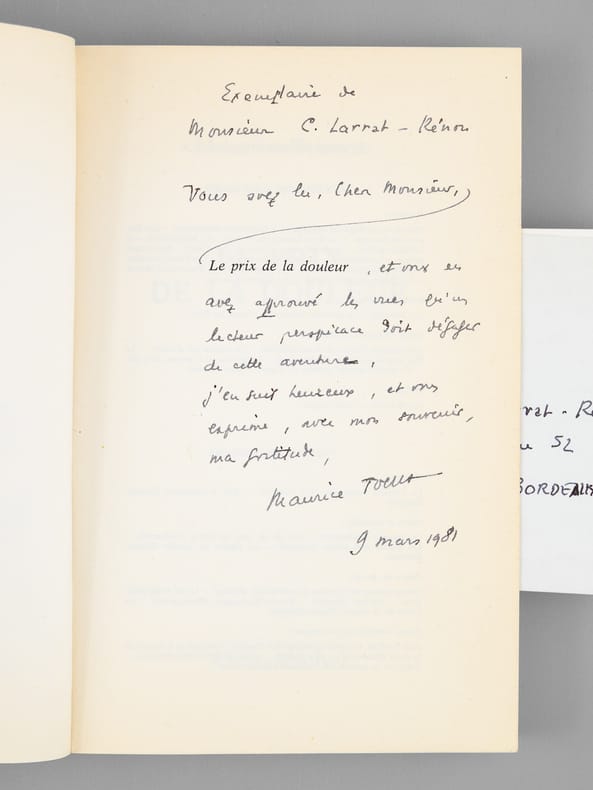 Exemplaire de
Monsieur C. Larrat - Rénon
Vous avez lu, Cher Monsieur,
Le prix de la douleur, et vous en
avez approuvé les vues qu'un
lecteur perspicace doit dégager
de cette aventure,
j'en suis heureux, et vous
exprime, avec mon souvenir,
ma gratitude,
Maurice Toesca
9 mars 1981
rrat - R
52
BORDEAUX